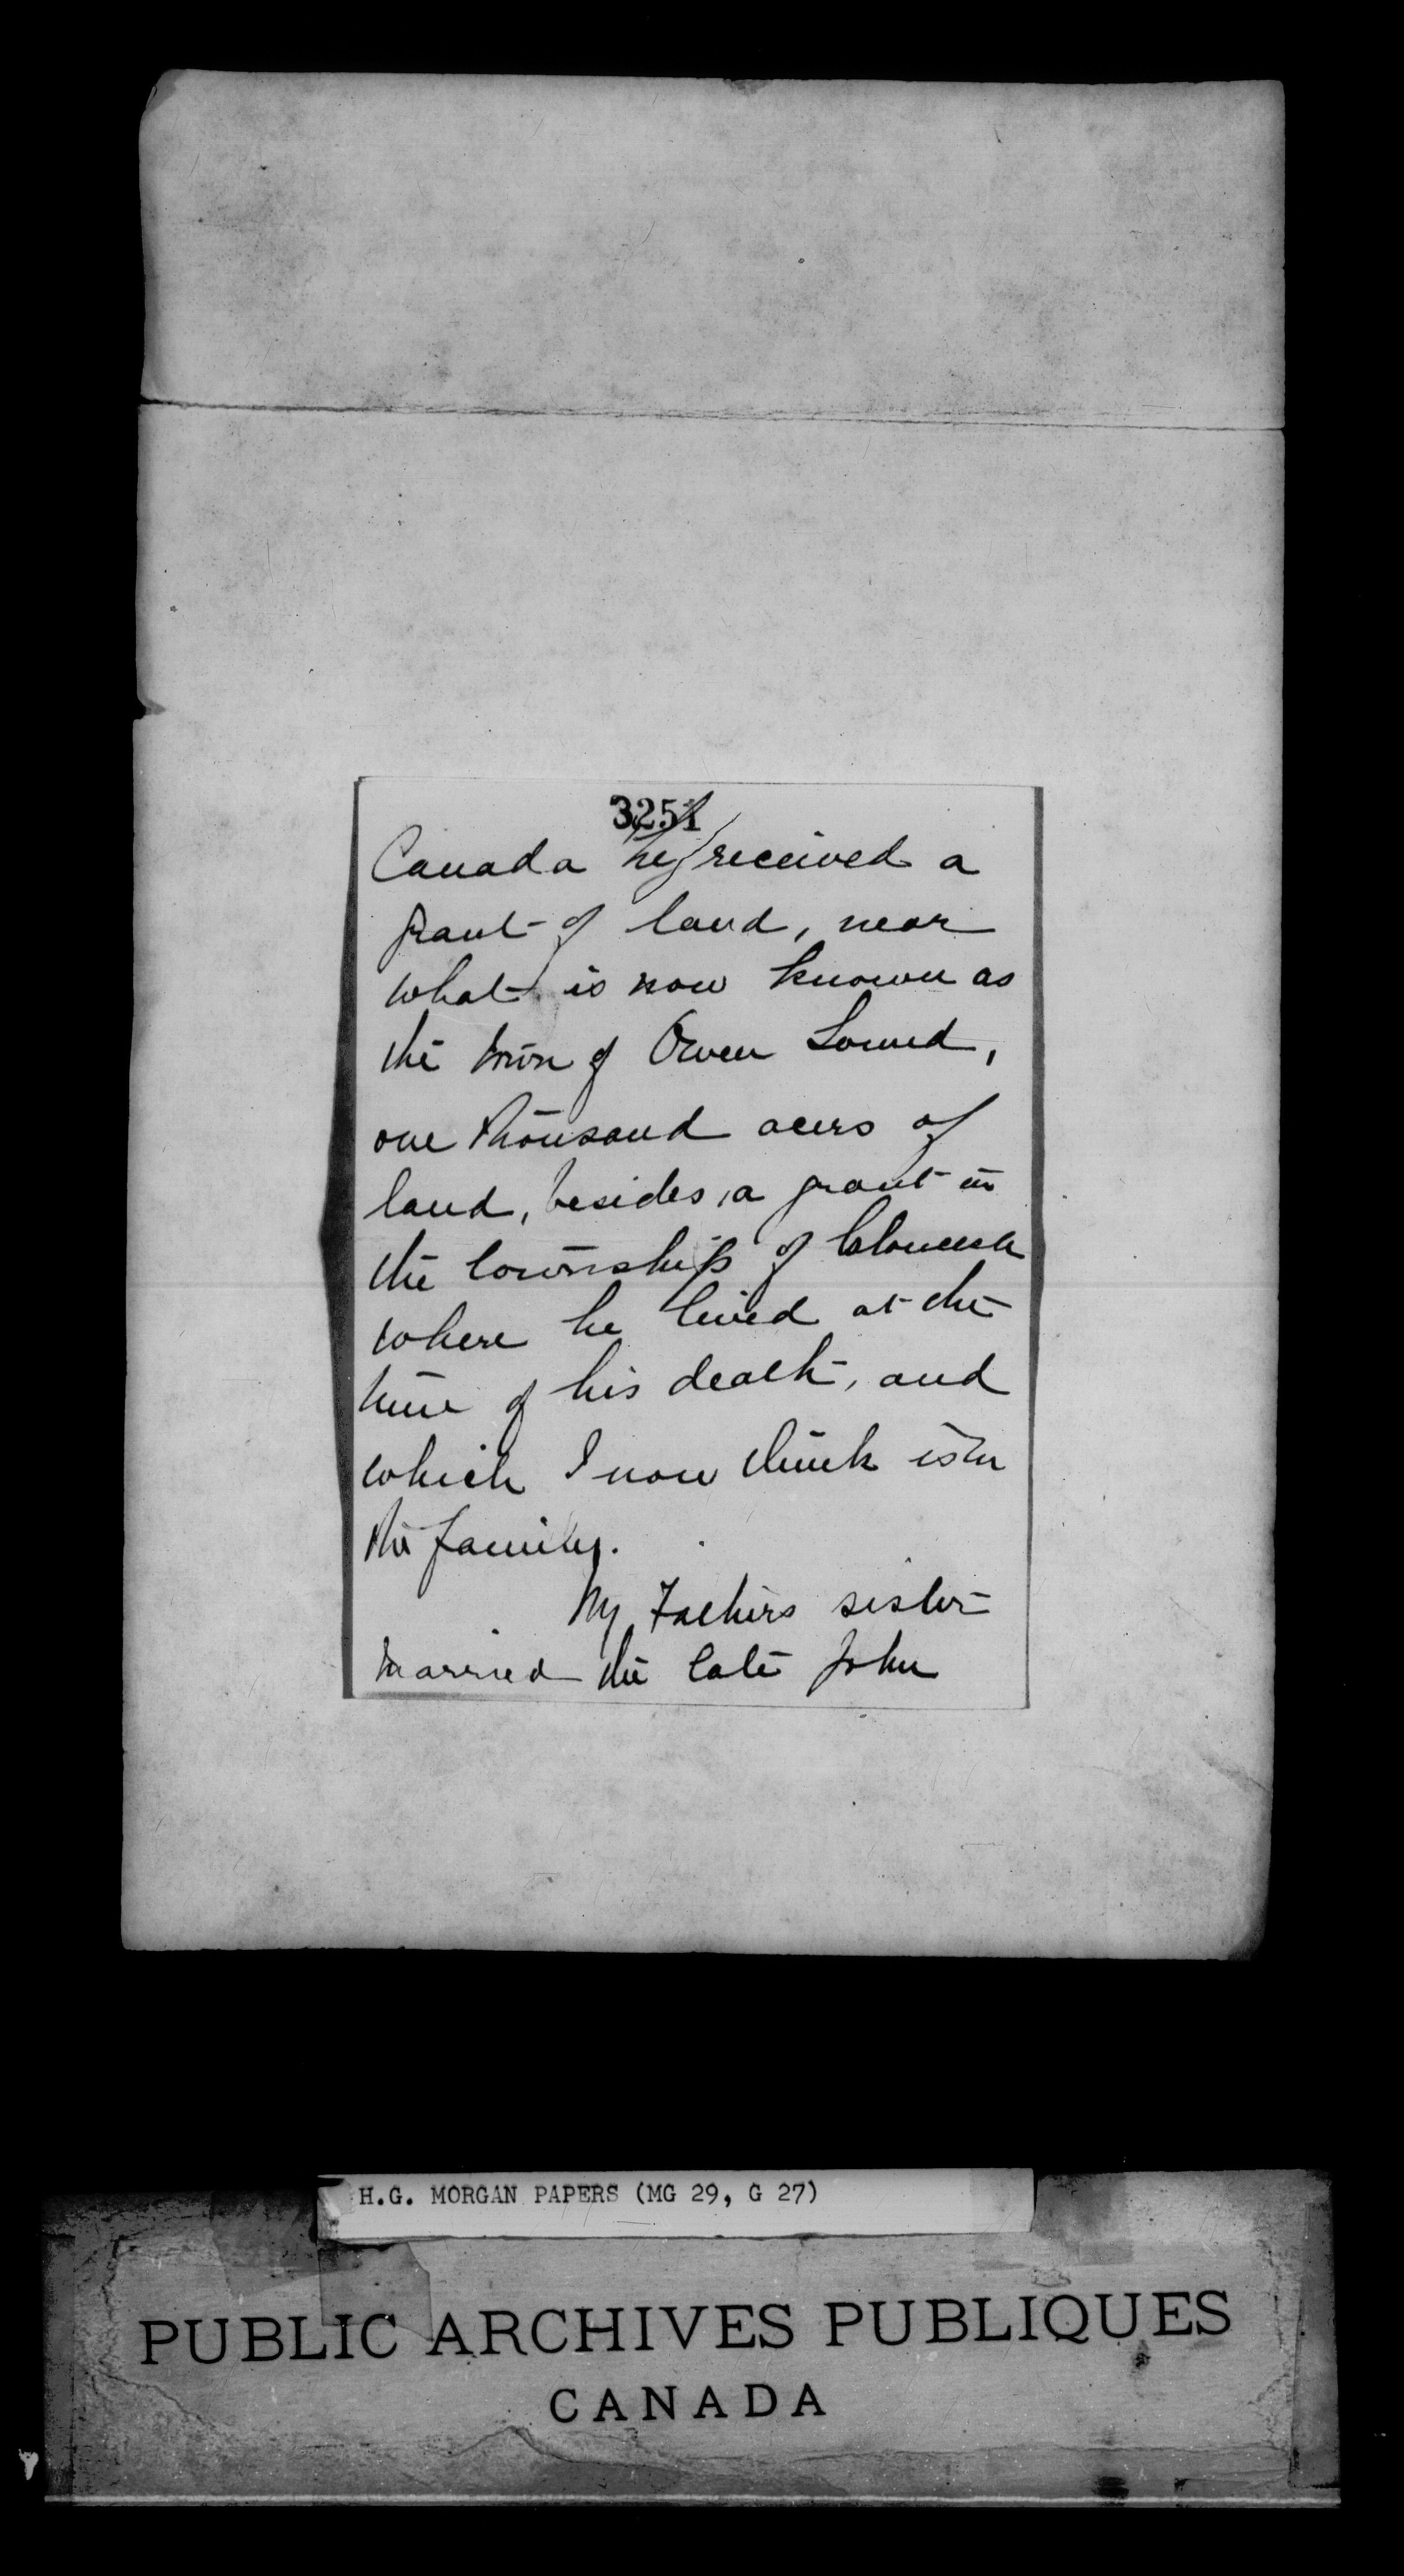 3251
Canada he received a
grant of land, near
what is now known as
the town of Owen Sound,
one thousand acers of
land, besides, a grant in
the township of
where he lived at the
time of his death, and
which I now think is in
the family.
My Fathers sister
married the late John
H.G. MORGAN PAPERS (MG 29, G 27)
PUBLIC ARCHIVES PUBLIQUES
CANADA